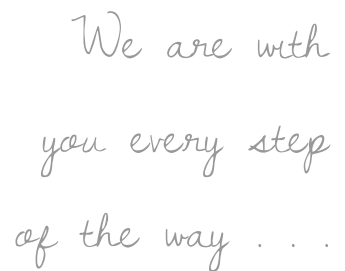 We are with
you every step
of the way . . .